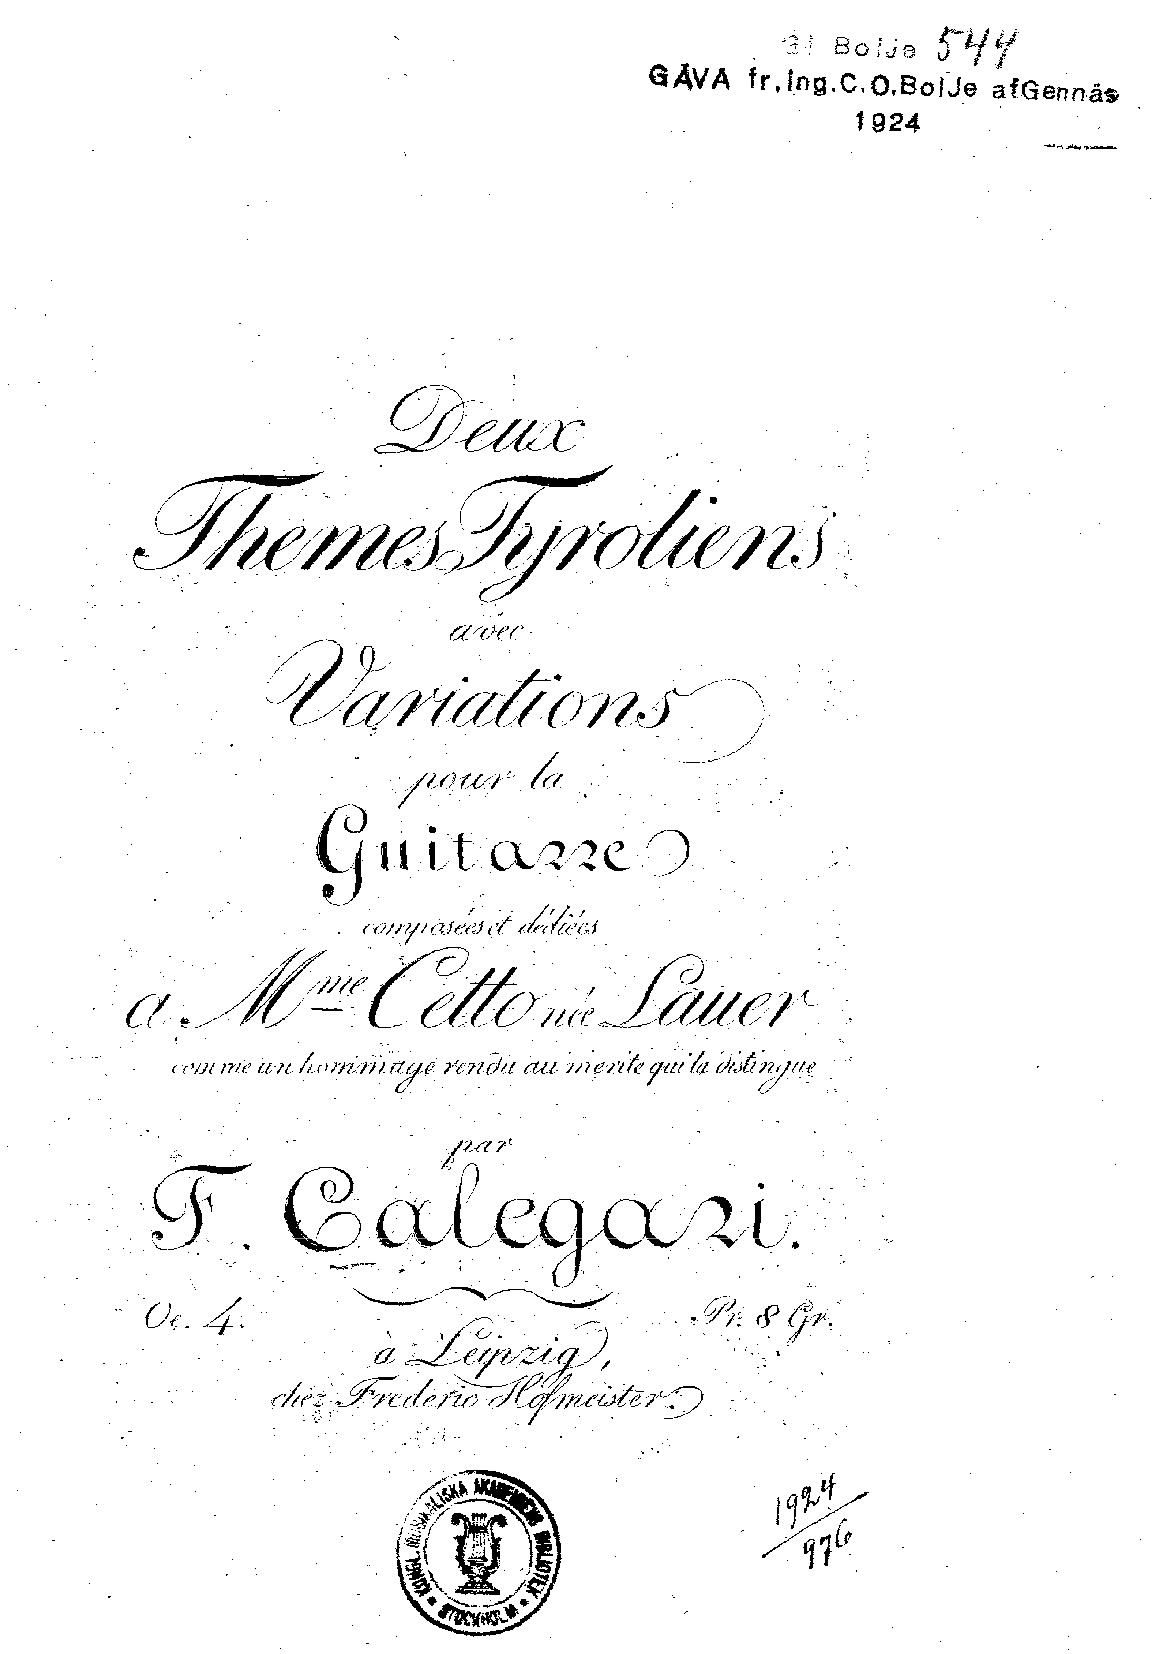 Boije 544
GÅVA fr. Ing. C. O. Boije af Gennäs
1924
Deux
Themes Tyroliens
avec
Variations
pour la
Guitarre
composées et dédiées
a Mme Cetto née Lauer
comme un hommage rendu au merite qui la distingue
par
F. Calegari.
Oe. 4. Pr. 8 Gr.
à Leipzig,
chez Frederic Hofmeister.
KONGL. MUSIKALISKA AKADEMIENS BIBLIOTEK
STOCKHOLM
1924
976